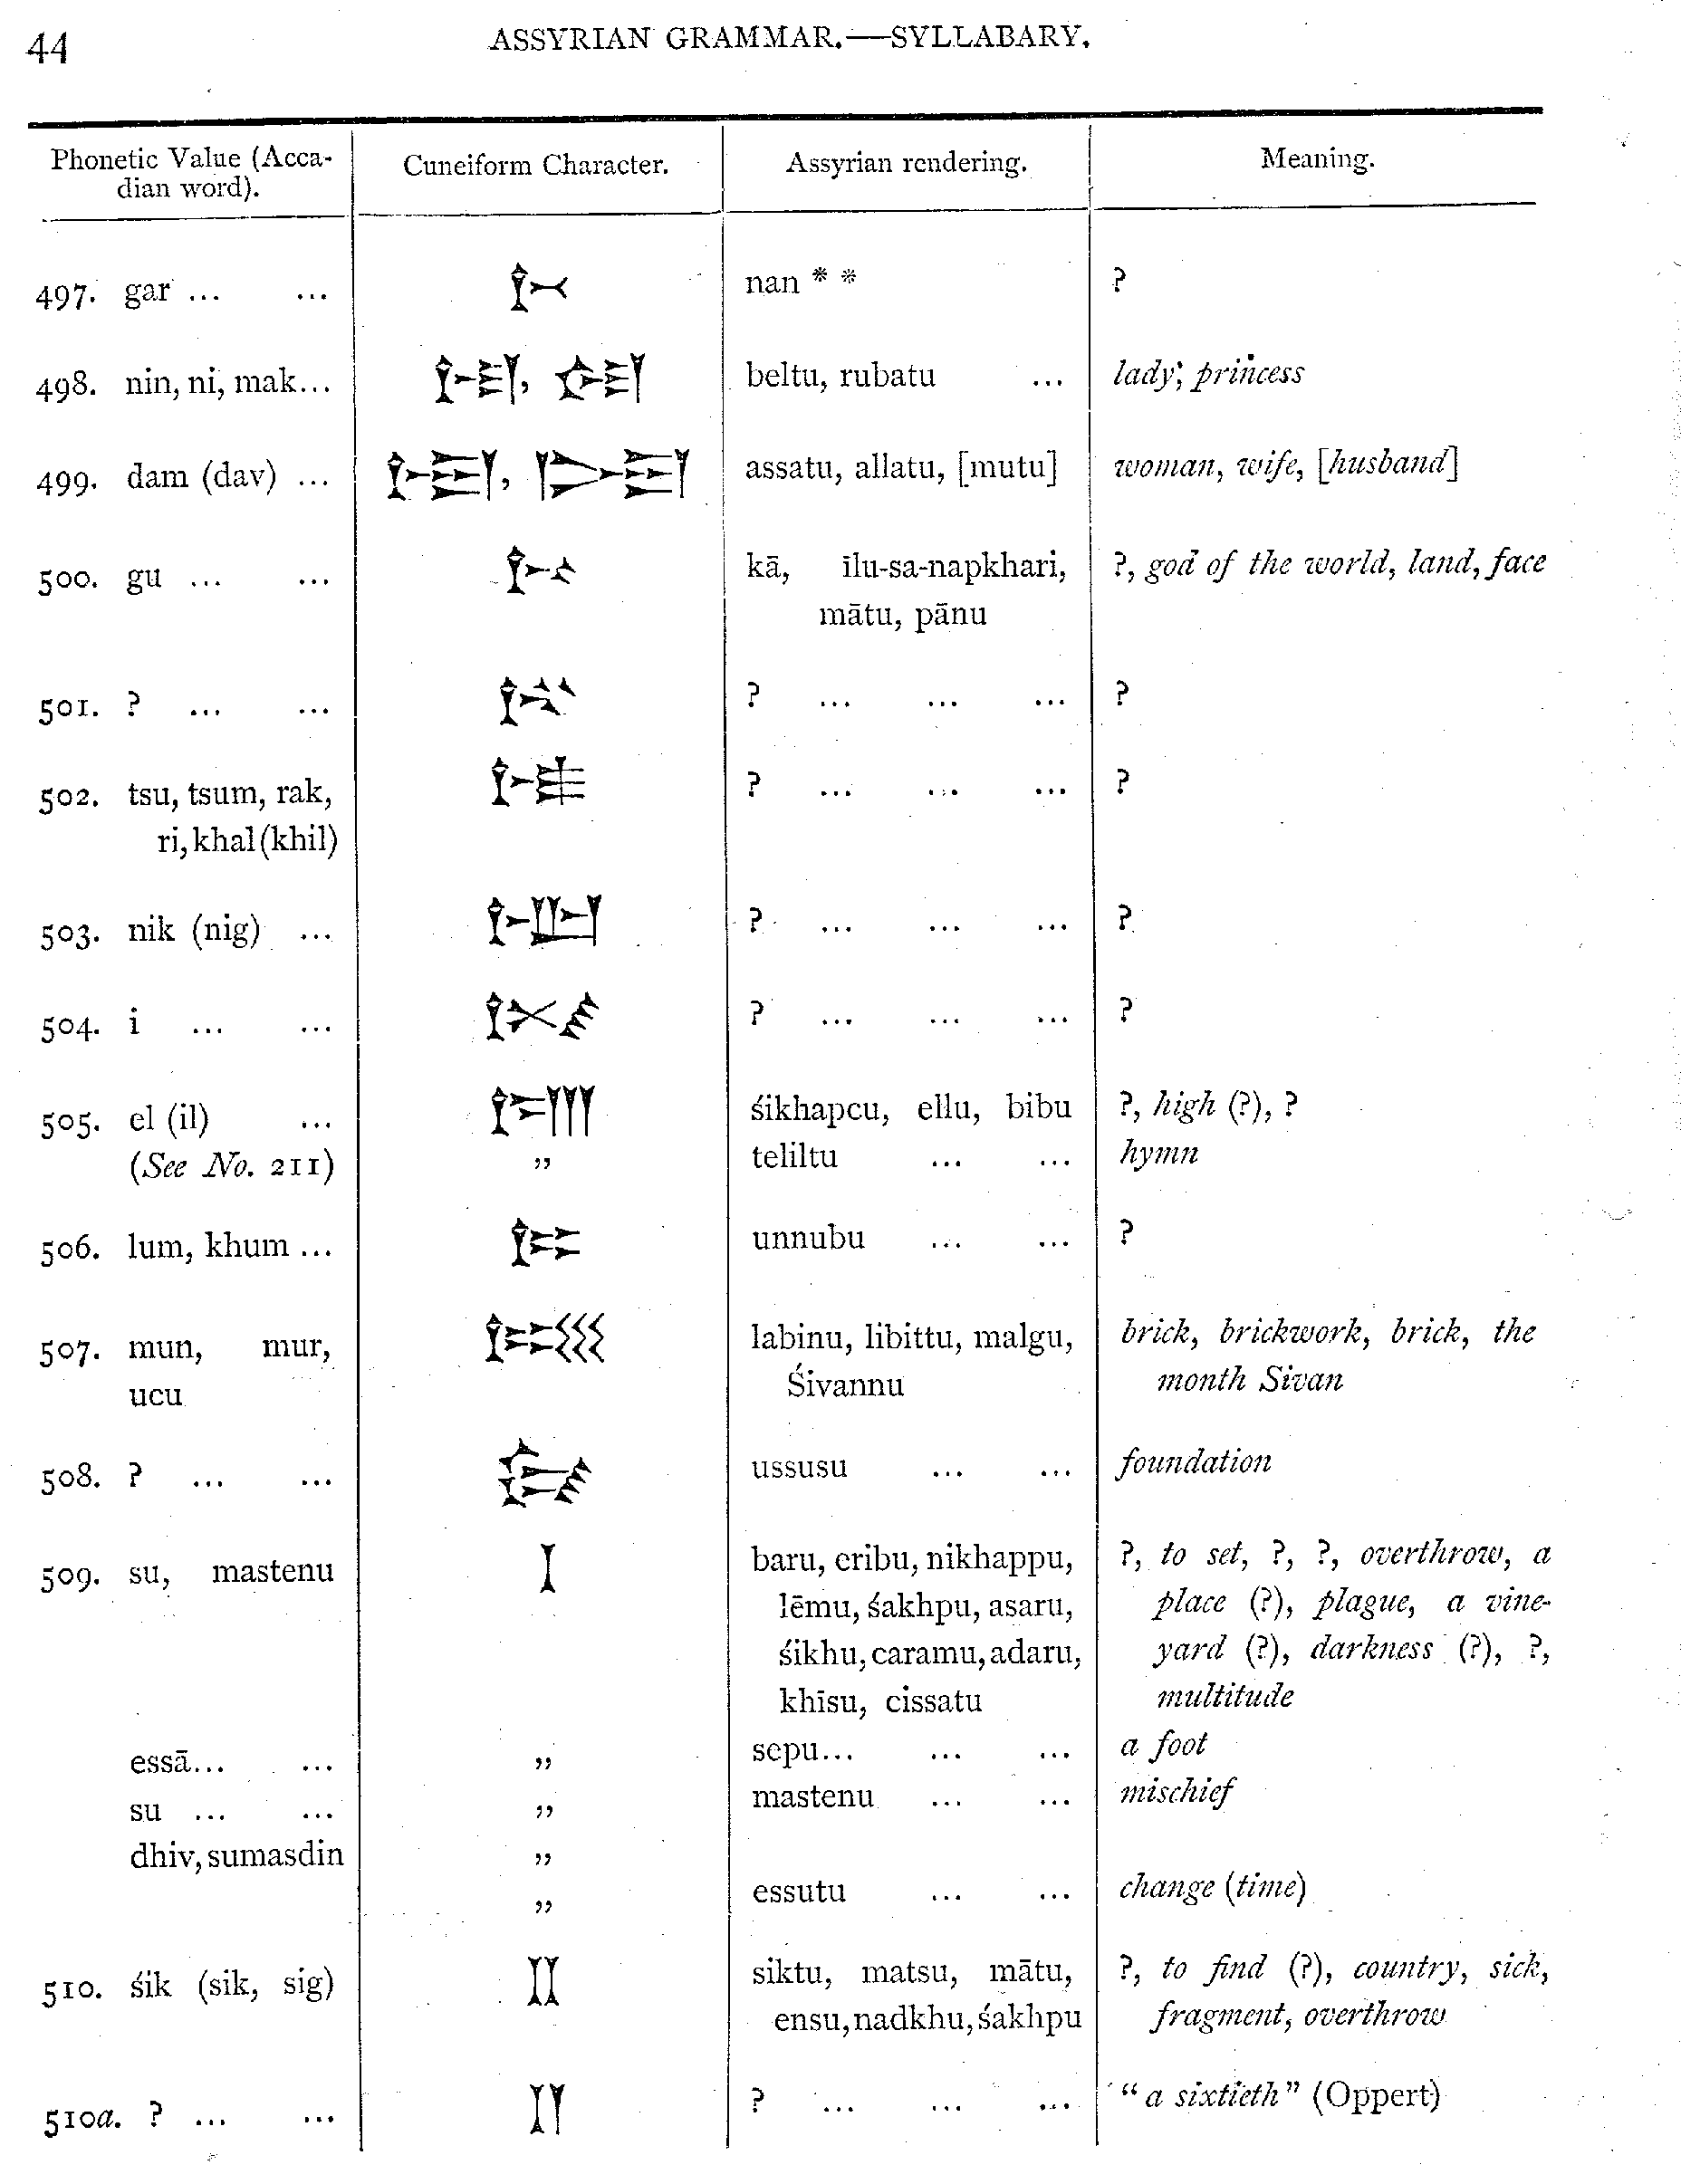 44
ASSYRIAN GRAMMAR.—SYLLABARY.
Phonetic Value (Acca- Cuneiform Character. Assyrian rendering. Meaning.
dian word).
497. gar ... ... nan * * ?
498. nin, ni, mak... beltu, rubatu ... lady, princess
499. dam (dav) ... assatu, allatu, [mutu] woman, wife, [husband]
500. gu ... ... kā, īlu-sa-napkhari, ?, god of the world, land, face
mātu, pānu
501. ? ... ... ? ... ... ... ?
502. tsu, tsum, rak, ? ... ... ... ?
ri, khal (khil)
503. nik (nig) ... ? ... ... ... ?
504. i ... ... ? ... ... ... ?
505. el (il) ... śikhapcu, ellu, bibu ?, high (?), ?
(See No. 211) ” teliltu ... ... hymn
506. lum, khum ... unnubu ... ... ?
507. mun, mur, labinu, libittu, malgu, brick, brickwork, brick, the
ucu Śivannu month Sivan
508. ? ... ... ussusu ... ... foundation
509. su, mastenu baru, eribu, nikhappu, ?, to set, ?, ?, overthrow, a
lēmu, śakhpu, asaru, place (?), plague, a vine-
śikhu, caramu, adaru, yard (?), darkness (?), ?,
khīsu, cissatu multitude
essā... ... ” sepu... ... ... a foot
su ... ... ” mastenu ... ... mischief
dhiv, sumasdin ”
” essutu ... ... change (time)
510. śik (sik, sig) siktu, matsu, mātu, ?, to find (?), country, sick,
ensu, nadkhu, śakhpu fragment, overthrow
510a. ? ... ... ? ... ... ... “a sixtieth” (Oppert)